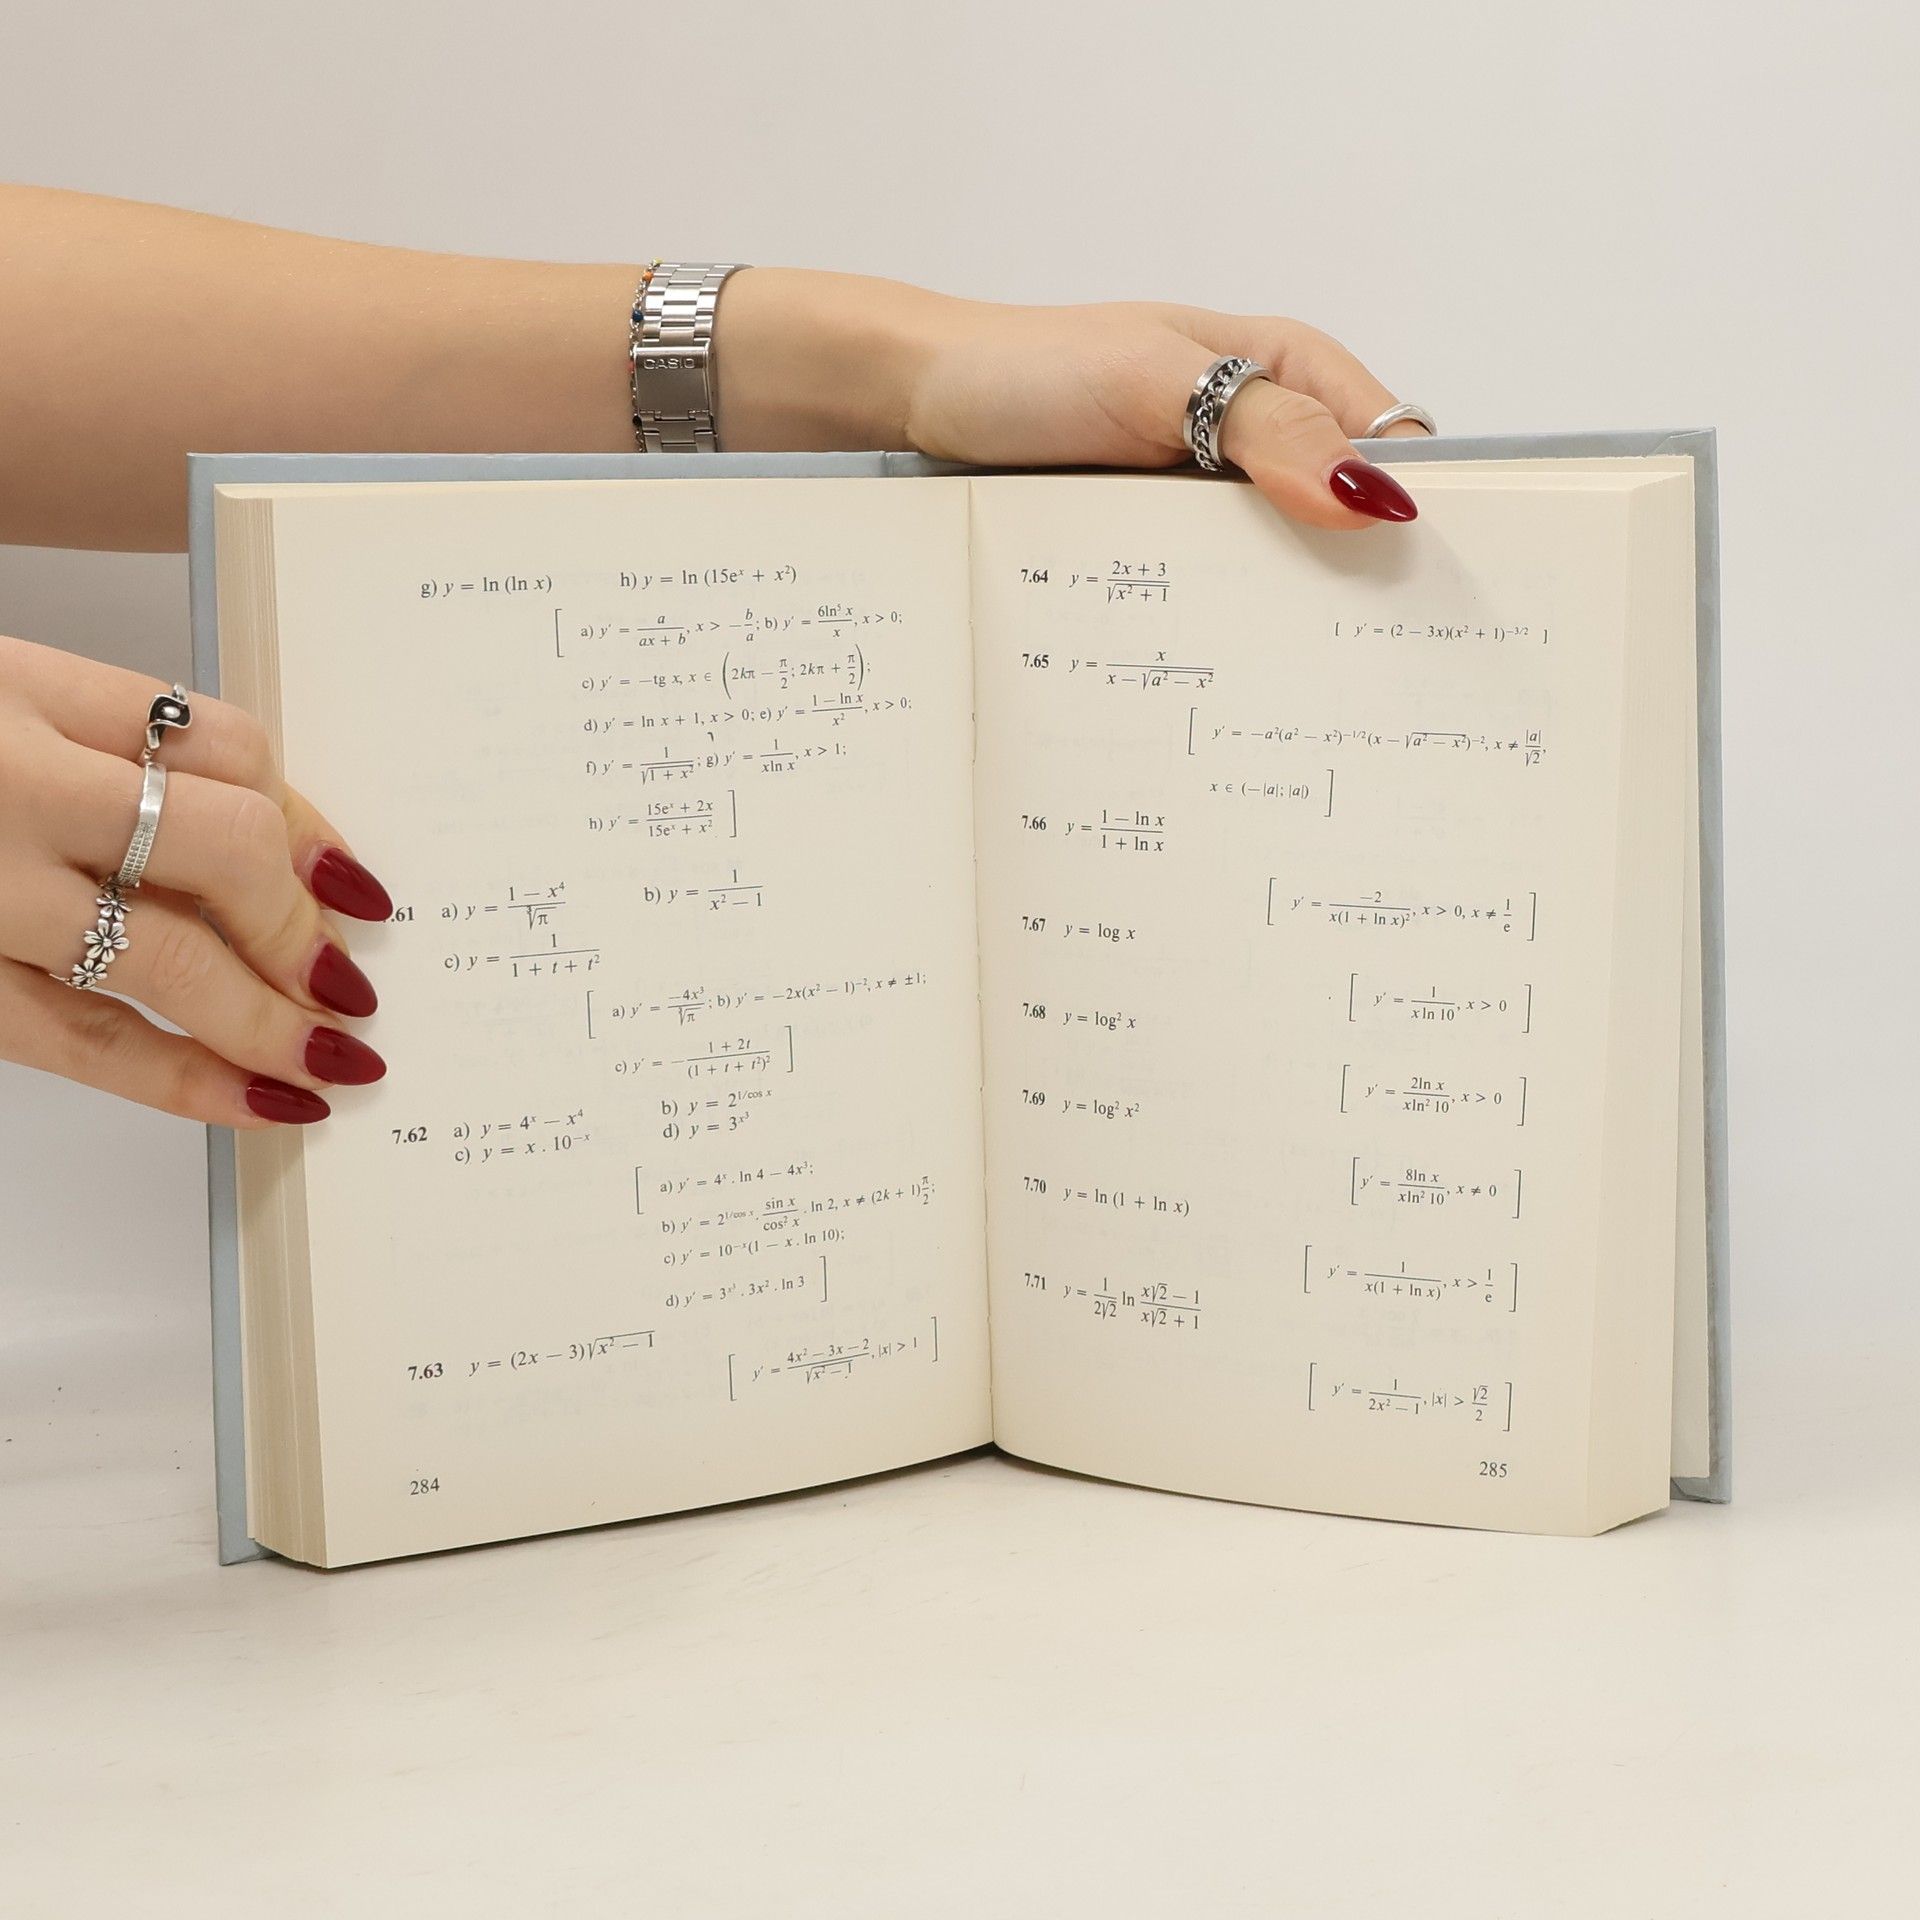 CASIO
g) y = ln (ln x) h) y = ln (15eˣ + x²)
[ a) y' = a/(ax + b), x > −b/a; b) y' = 6ln⁵ x/x, x > 0;
c) y' = −tg x, x ∈ (2kπ − π/2; 2kπ + π/2);
d) y' = ln x + 1, x > 0; e) y' = (1 − ln x)/x², x > 0;
f) y' = 1/√(1 + x²); g) y' = 1/(xln x), x > 1;
h) y' = (15eˣ + 2x)/(15eˣ + x²) ]
.61 a) y = (1 − x⁴)/∛π b) y = 1/(x² − 1)
c) y = 1/(1 + t + t²)
[ a) y' = −4x³/∛π; b) y' = −2x(x² − 1)⁻², x ≠ ±1;
c) y' = −(1 + 2t)/(1 + t + t²)² ]
7.62 a) y = 4ˣ − x⁴ b) y = 2^(1/cos x)
c) y = x . 10⁻ˣ d) y = 3^(x³)
[ a) y' = 4ˣ . ln 4 − 4x³;
b) y' = 2^(1/cos x) . sin x/cos² x . ln 2, x ≠ (2k + 1)π/2;
c) y' = 10⁻ˣ(1 − x . ln 10);
d) y' = 3^(x³) . 3x² . ln 3 ]
7.63 y = (2x − 3)√(x² − 1)
[ y' = (4x² − 3x − 2)/√(x² − 1), |x| > 1 ]
284
7.64 y = (2x + 3)/√(x² + 1)
[ y' = (2 − 3x)(x² + 1)^(−3/2) ]
7.65 y = x/(x − √(a² − x²))
[ y' = −a²(a² − x²)^(−1/2)(x − √(a² − x²))⁻², x ≠ |a|/√2,
x ∈ (−|a|; |a|) ]
7.66 y = (1 − ln x)/(1 + ln x)
[ y' = −2/(x(1 + ln x)²), x > 0, x ≠ 1/e ]
7.67 y = log x
[ y' = 1/(xln 10), x > 0 ]
7.68 y = log² x
[ y' = 2ln x/(xln² 10), x > 0 ]
7.69 y = log² x²
[ y' = 8ln x/(xln² 10), x ≠ 0 ]
7.70 y = ln (1 + ln x)
[ y' = 1/(x(1 + ln x)), x > 1/e ]
7.71 y = 1/(2√2) ln (x√2 − 1)/(x√2 + 1)
[ y' = 1/(2x² − 1), |x| > √2/2 ]
285